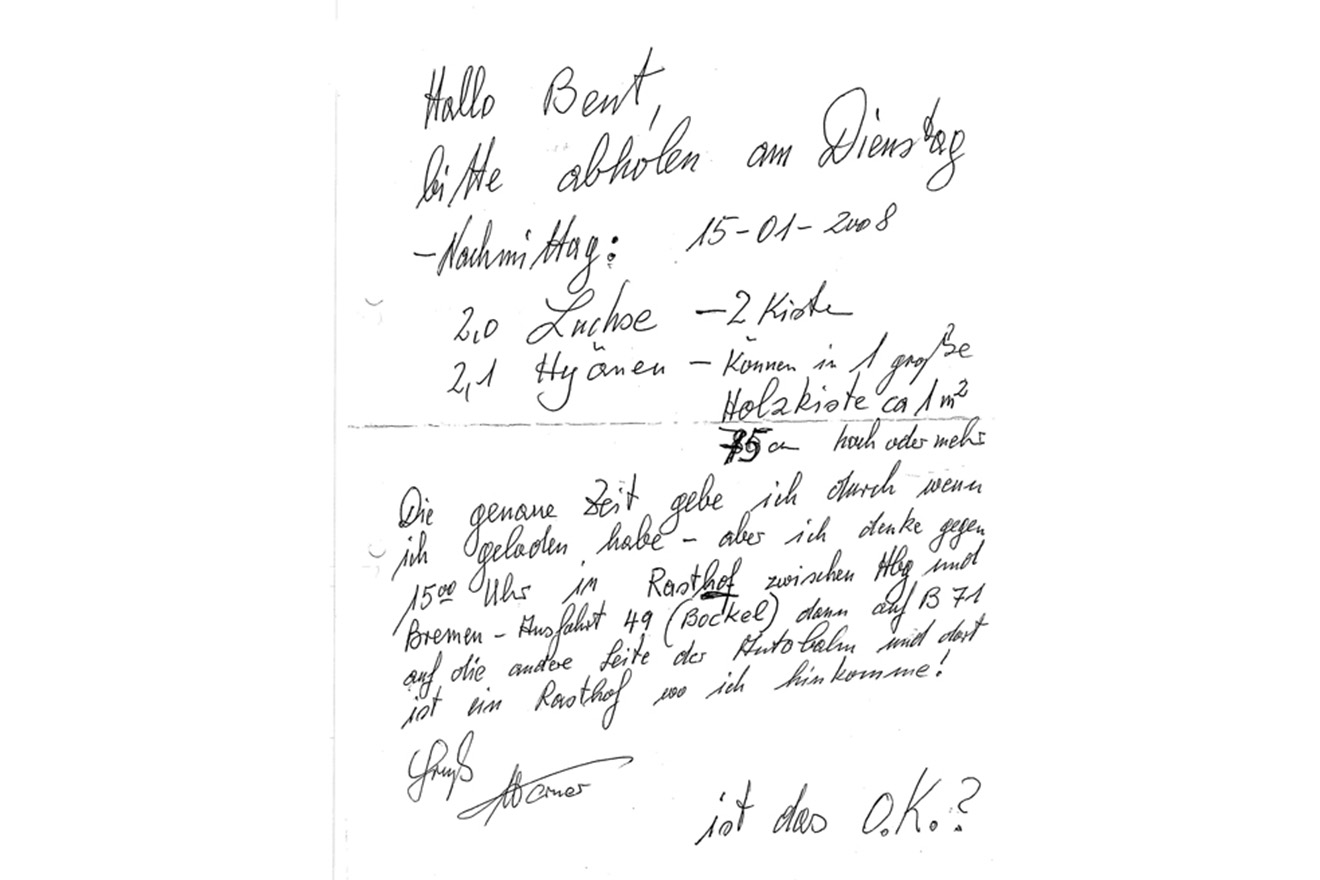 Hallo Bent,
bitte abholen am Dienstag
-Nachmittag: 15-01-2008
2,0 Luchse - 2 Kiste
2,1 Hyänen - Können in 1 große
Holzkiste ca 1 m²
75 cm hoch oder mehr
Die genaue Zeit gebe ich durch wenn
ich geladen habe - aber ich denke gegen
15⁰⁰ Uhr in Rasthof zwischen Hbg und
Bremen - Ausfahrt 49 (Bockel) dann auf B 71
auf die andere Seite der Autobahn und dort
ist ein Rasthof wo ich hinkomme!
Gruß
Werner
ist das O.K.?